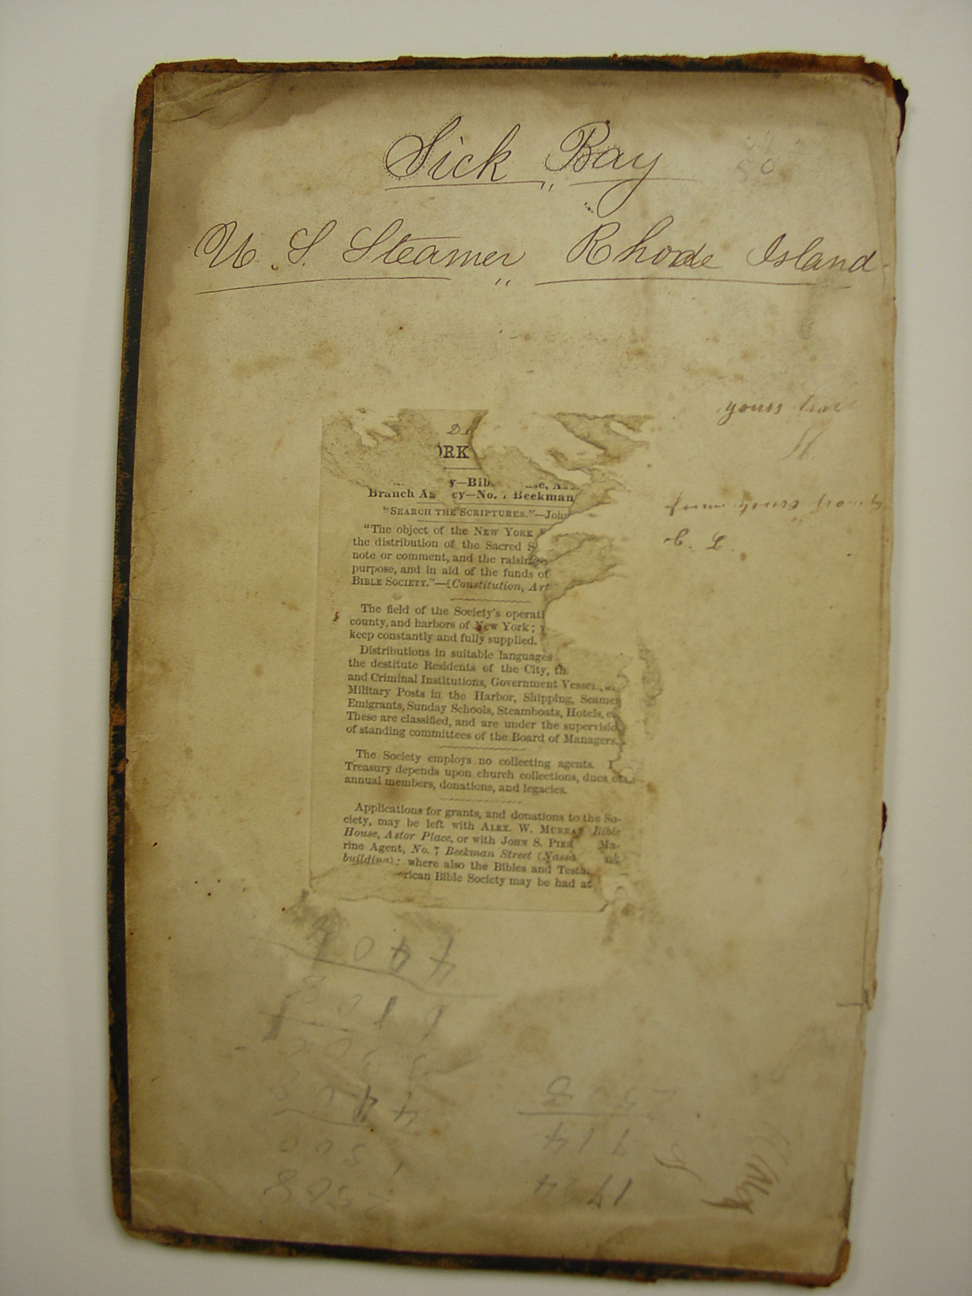 Sick Bay
U. S. Steamer Rhode Island
yours
D
ORK
y—Bib se, A
Branch A cy—No. 7 Beekman
"SEARCH THE SCRIPTURES."—John
"The object of the NEW YORK
the distribution of the Sacred S
note or comment, and the raising
purpose, and in aid of the funds of
BIBLE SOCIETY."—[Constitution, Art
The field of the Society's operati
county, and harbors of New York;
keep constantly and fully supplied.
Distributions in suitable languages
the destitute Residents of the City, th
and Criminal Institutions, Government Vesse
Military Posts in the Harbor, Shipping, Seamen
Emigrants, Sunday Schools, Steamboats, Hotels, e
These are classified, and are under the supervisio
of standing committees of the Board of Managers.
The Society employs no collecting agents.
Treasury depends upon church collections, dues of
annual members, donations, and legacies.
Applications for grants, and donations to the So-
ciety, may be left with ALEX. W. MURRAY Bible
House, Astor Place, or with JOHN S. PIER Ma-
rine Agent, No. 7 Beekman Street (Nassa nk
building); where also the Bibles and Testa
rican Bible Society may be had at
2508
914
1794